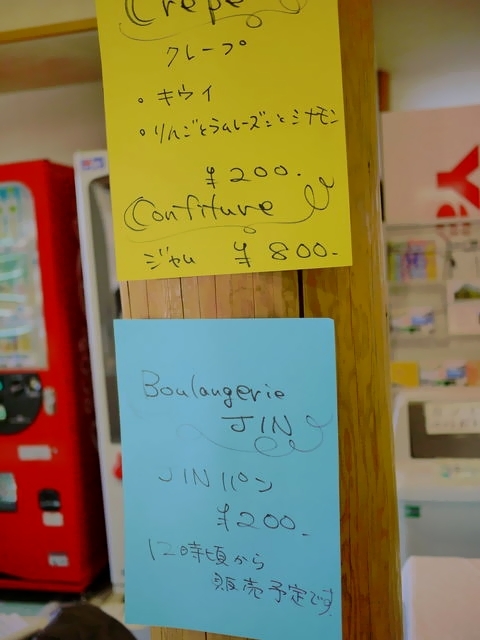 Crepe
クレープ
・キウイ
・りんごとラムレーズンとシナモン
¥200.
Confiture
ジャム ¥800.-
Boulangerie
JIN
JINパン
¥200.
12時頃から
販売予定です